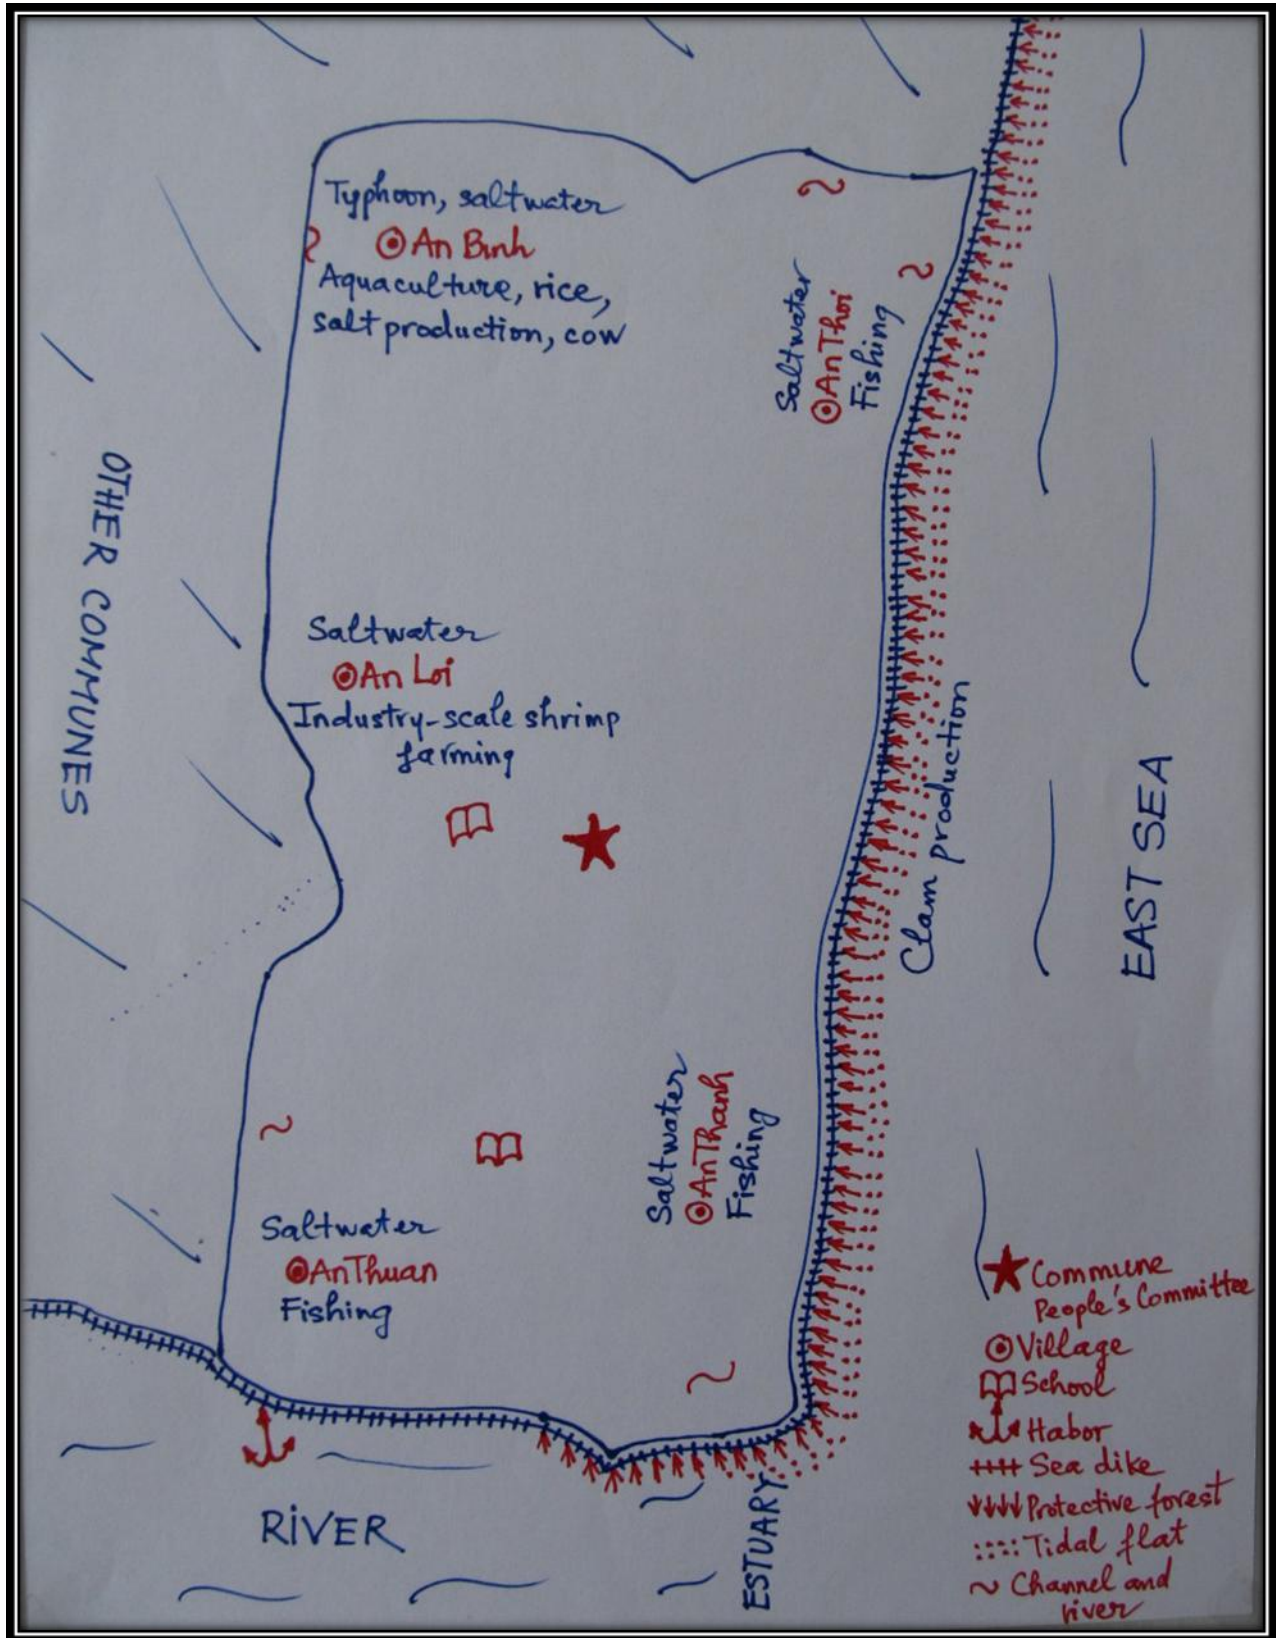 Typhoon, saltwater
An Binh
Aquaculture, rice,
salt production, cow
Saltwater
An Thoi
Fishing
OTHER COMMUNES
Saltwater
An Loi
Industry-scale shrimp
farming
Clam production
EAST SEA
Saltwater
An Thanh
Fishing
Saltwater
An Thuan
Fishing
RIVER
ESTUARY
Commune
People's Committee
Village
School
Habor
Sea dike
Protective forest
Tidal flat
Channel and
river